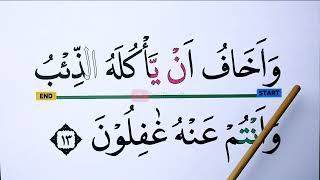 وَاَخَافُ اَنْ يَّاْكُلَهُ الذِّئْبُ
END START
وَاَنْتُمْ عَنْهُ غٰفِلُوْنَ ﴿١٣﴾